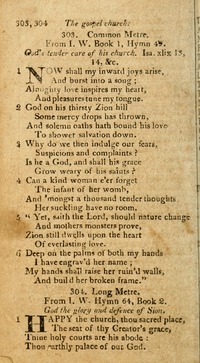 303, 304 The gospel church:
303. Common Metre.
From I. W. Book 1, Hymn
God's tender care of his church. Isa. xlix 13,
14, &c.
1 NOW shall my inward joys arise,
And burst into a song;
Almighty love inspires my heart,
And pleasures tune my tongue.
2 God on his thirsty Zion hill
Some mercy drops has thrown,
And solemn oaths hath bound his love
To shower salvation down.
3 Why do we then indulge our fears,
Suspicions and complaints?
Is he a God, and shall his grace
Grow weary of his saints?
4 Can a kind woman e'er forget
The infant of her womb,
And 'mongst a thousand tender thoughts
Her suckling have no room.
5 "Yet, saith the Lord, should nature change
And mothers monsters prove,
Zion still dwells upon the heart
Of everlasting love.
6 Deep on the palms of both my hands
I have engrav'd her name;
My hands shall raise her ruin'd walls,
And build her broken frame."
304. Long Metre.
From I. W. Hymn 64, Book 2.
God the glory and defence of Sion.
1 HAPPY the church, thou sacred place,
The seat of thy Creator's grace,
Thine holy courts are his abode:
Thou earthly palace of our God.